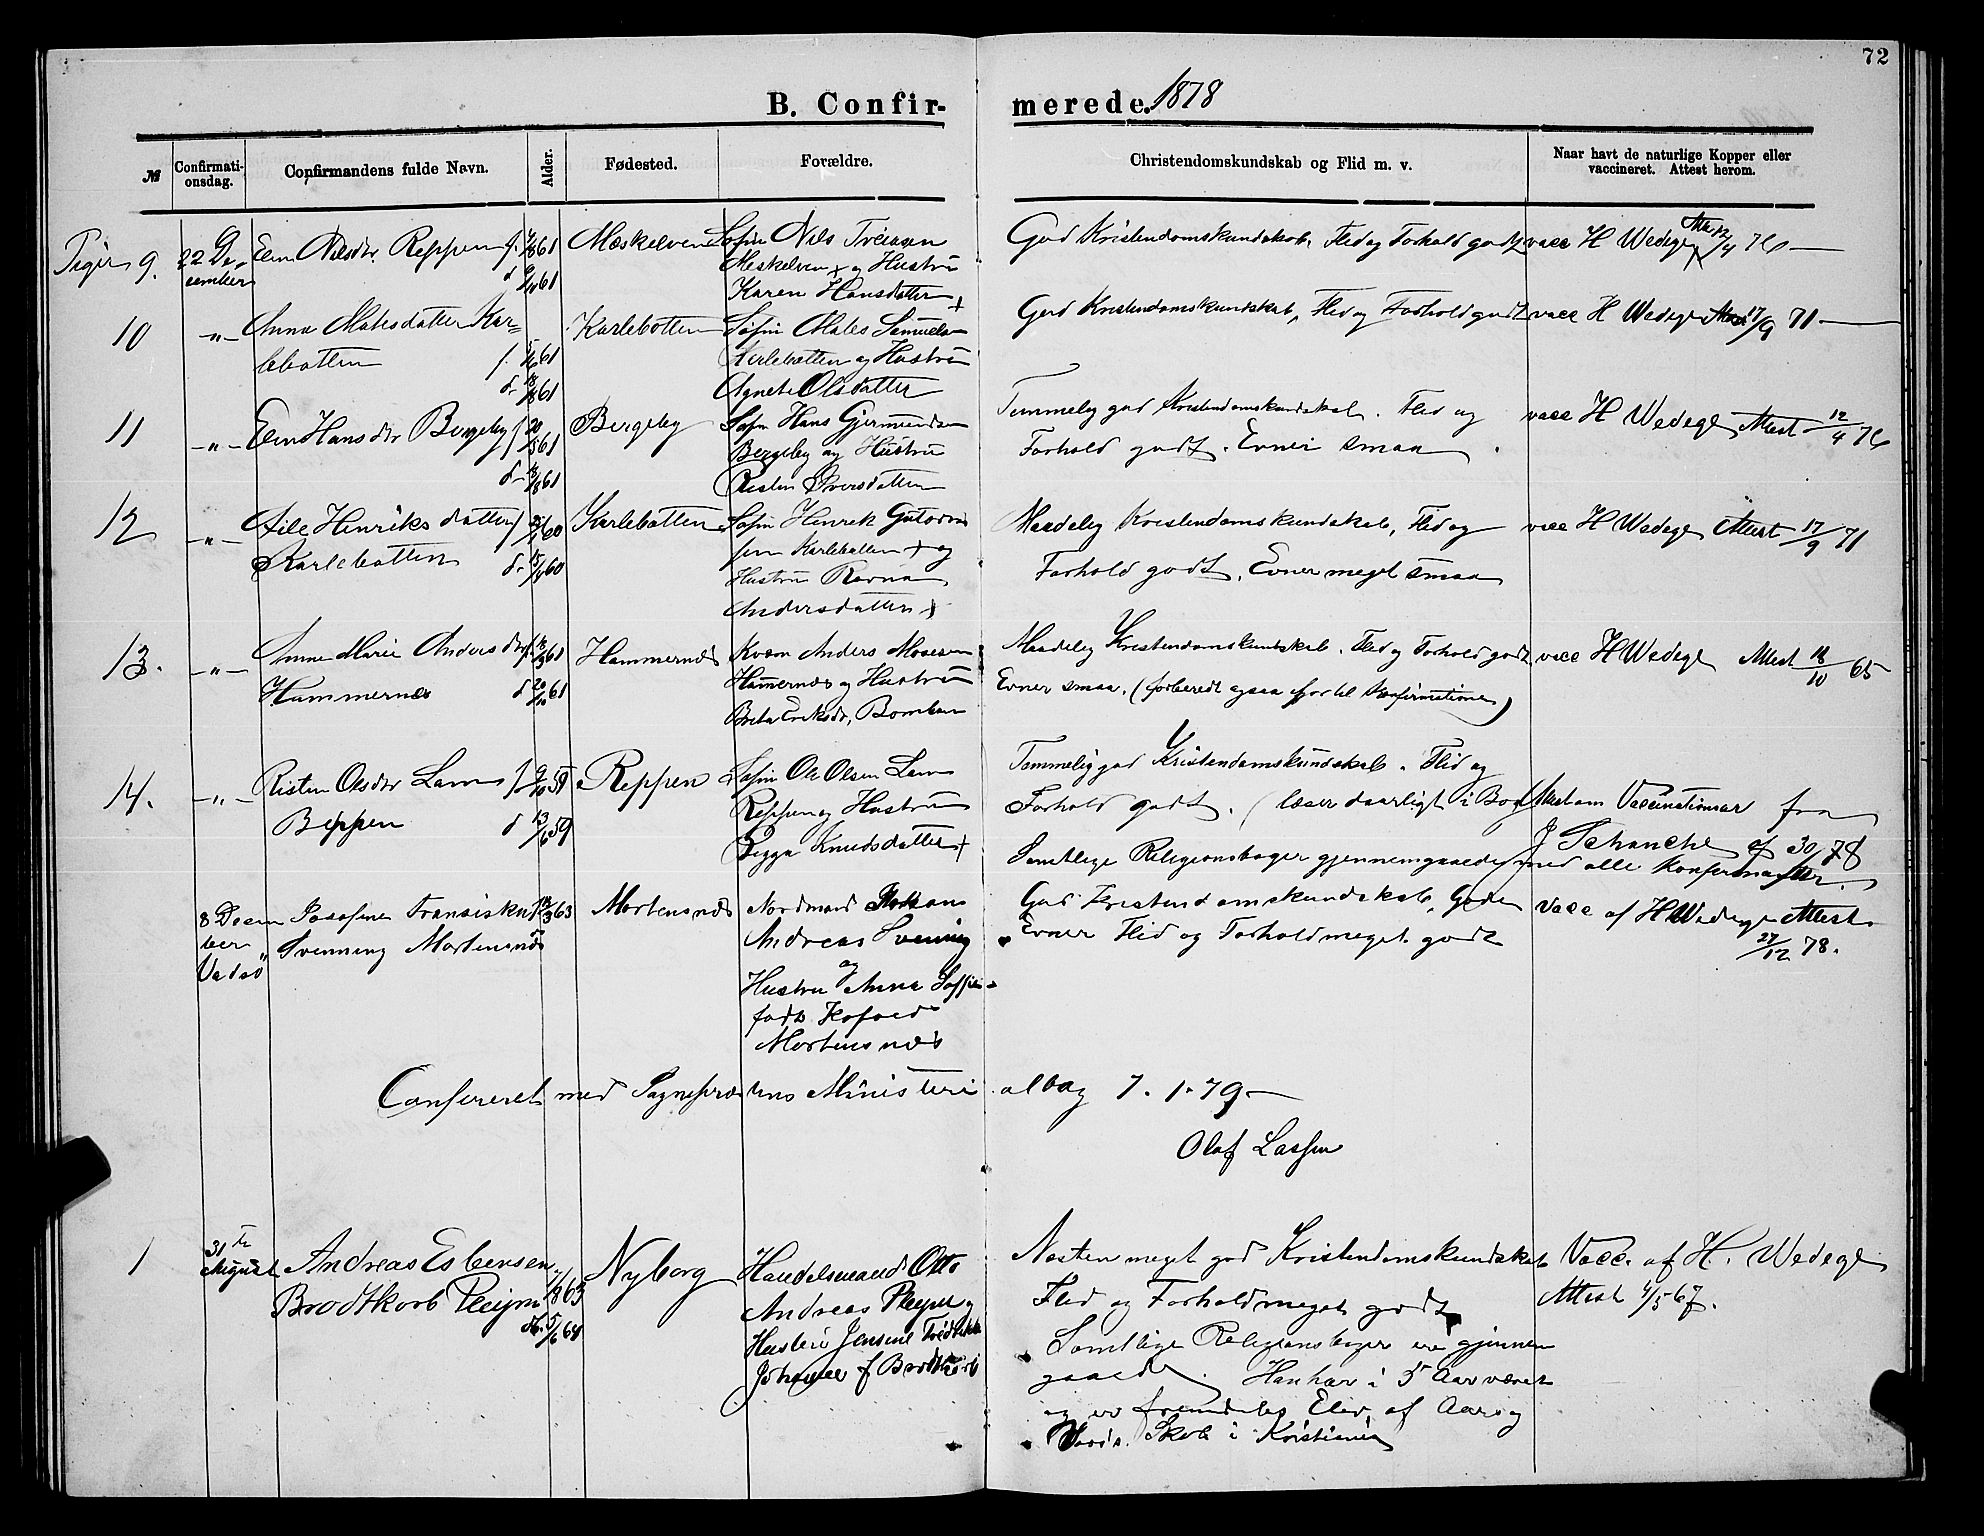 72
B. Confirmerede. 1878
№ Confirmationsdag. Confirmandens fulde Navn. Alder. Fødested. Forældre. Christendomskundskab og Flid m. v. Naar havt de naturlige Kopper eller vaccineret. Attest herom.
Piger 9. 22 De- Nilsdr. Reppen f. 61 Mæskelven Søfin Nils
cember d 61 Meskelven + og Hustru
Karen Hansdatter +
God Kristendomskundskab, Flid og Forhold godt vacc H Wedege Att 12/4 76
10 -"- Anna Matesdatter Kar= Karlebotten Søfin Mates Samuelsen
lebotten f. 61 Karlebotten og Hustru
d. 18/8 61 Agnete Olsdatter
God Kristendomskundskab, Flid og Forhold godt vacc H Wedege Attest 17/9 71
11 -"- Elen Hansdtr Bergeby f 20/5 61 Bergeby Søfin Hans Gjermundsen
d. 18/8 61 Bergeby og Hustru
Risten Iversdatter
Temmelig god Kristendomskundskab. Flid og vacc H Wedege Attest 12/4 76
Forhold godt. Evner smaa
12 -"- Henriks datter f 60 Karlebotten Søfin Henrik
Karlebotten d. 15/4 60 Karlebotten + og
Hustru Ravna
Andersdatter +
Maadelig Kristendomskundskab, Flid og vacc H Wedege Attest 17/9 71
Forhold godt. Evner meget smaa
13. -"- Anne Marie Andersdtr f. 61 Hammernes Kvæn Anders Mosesen
Hammernes d 20/10 61 Hamernes og Hustru
Brita Eriksdr. Bomban
Maadelig Kristendomskundskab. Flid og Forhold godt vacc H Wedege Attest 18/10 65
Evner smaa. (forberedt ogsaa ifjor til Konfirmationen)
14. -"- Risten Olsdtr Lam f 9/10 59 Reppen Søfin Ole Olsen Lam
Reppen d 13/ 59 Reppen og Hustru
Bigga Knudsdatter +
Temmelig god Kristendomskundskab. Flid og
Forhold godt. (læser daarligt i Bog) Attest om Vaccination fra
J Schanche af 30/ 78
Samtlige Religionsbøger gjennemgaaede med alle Konfirmanter.
8 Decem Josefine Fransiska 63 Mortensnes Nordmand Johan
ber Svenning Mortensnes Andreas Svenning
Vadsö og
Hustru Anna Soffie
født Kofoed
Mortensnæs
God Kristendomskundskab, Gode vacc af H Wedege Attest
Evner Flid og Forhold meget godt 27/12 78.
Confereret med Sognepræstens Ministerialbog 7. 1. 79
Olaf Lassen
1 31te August Andreas Esbensen 7/8 63 Nyborg Handelsmand Otto
Brodtkorb Pleym db. 5/6 64 Andreas Pleym og
Hustru Jensine Fredrikke
Johanne f Brodtkorb
Næsten meget god Kristendomskundskab Vacc. af H. Wedege
Flid og Forhold meget godt Attest 4/5 67.
Samtlige Religionsbøger ere gjennem
gaaede. Han har i 5 Aar været
og er fremdeles Elev af Aars og
Voss. Skole i Kristiania